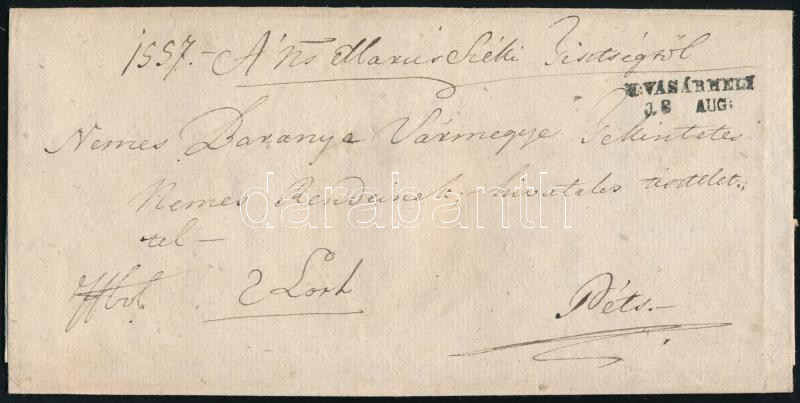 1557.- A Ns Maros Széki Tisztségtől
M:VASÁRHELY
18 AUG:
Nemes Baranya Vármegye Tekintetes
Nemes Rendeinek, hivatalos tisztelet-
tel -
darabanth
Péts.-